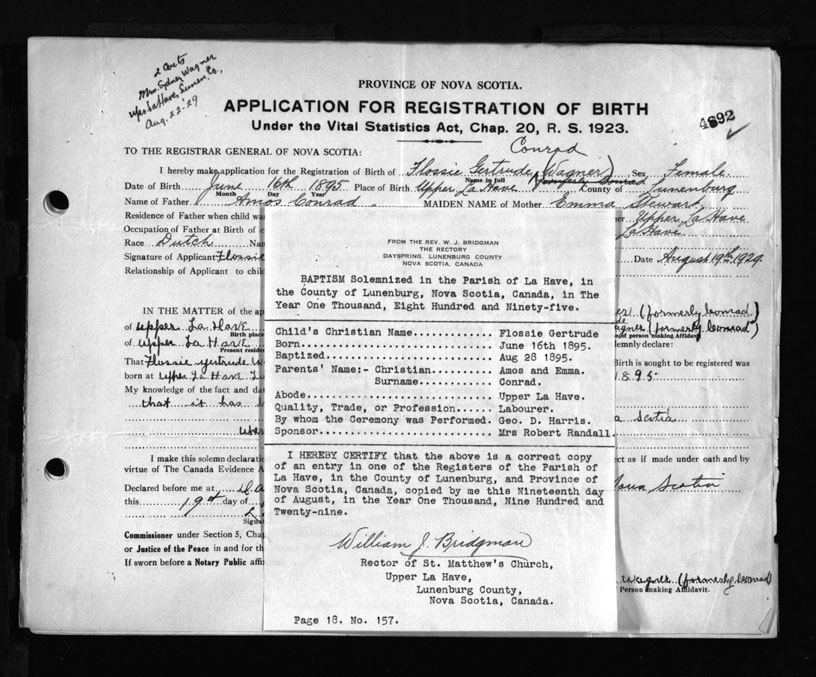 2 Certs
Mrs. Sydney Wagner
Upper LaHave, Lunen. Co.,
Aug. 22-29
4892
PROVINCE OF NOVA SCOTIA.
APPLICATION FOR REGISTRATION OF BIRTH
Under the Vital Statistics Act, Chap. 20, R. S. 1923.
TO THE REGISTRAR GENERAL OF NOVA SCOTIA:
Conrad
I hereby make application for the Registration of Birth of Flossie Gertrude (Wagner) Sex Female
Name in full formerly Conrad
Date of Birth June 16th 1895 Place of Birth Upper La Have County of Lunenburg
Month Day Year
Name of Father Amos Conrad MAIDEN NAME of Mother Emma Stewart
Residence of Father when child wa Upper La Have
Occupation of Father at Birth of c La Have
Race Dutch Na
Signature of Applicant Flossie Date August 19th 1929
Relationship of Applicant to chil
FROM THE REV. W. J. BRIDGMAN
THE RECTORY
DAYSPRING, LUNENBURG COUNTY
NOVA SCOTIA, CANADA
BAPTISM Solemnized in the Parish of La Have, in
the County of Lunenburg, Nova Scotia, Canada, in The
Year One Thousand, Eight Hundred and Ninety-five.
Child's Christian Name............ Flossie Gertrude
Born.............................. June 16th 1895.
Baptized.......................... Aug 28 1895.
Parents' Name:- Christian......... Amos and Emma.
Surname........... Conrad.
Abode............................. Upper La Have.
Quality, Trade, or Profession..... Labourer.
By whom the Ceremony was Performed. Geo. D. Harris.
Sponsor........................... Mrs Robert Randall.
I HEREBY CERTIFY that the above is a correct copy
of an entry in one of the Registers of the Parish of
La Have, in the County of Lunenburg, and Province of
Nova Scotia, Canada, copied by me this Nineteenth day
of August, in the Year One Thousand, Nine Hundred and
Twenty-nine.
William J. Bridgman
Rector of St. Matthew's Church,
Upper La Have,
Lunenburg County,
Nova Scotia, Canada.
Page 18. No. 157.
IN THE MATTER of the ap (formerly Conrad)
of Upper La Have Wagner (formerly Conrad)
Birth place of person making Affidavit
of Upper La Have emnly declare:
Present reside
That Flossie Gertrude W Birth is sought to be registered was
born at Upper La Have 1895
My knowledge of the fact and da
that it has Scotia
I make this solemn declarati ct as if made under oath and by
virtue of The Canada Evidence A
Declared before me at Nova Scotia
this 19th day of
Sign
Commissioner under Section 5, Cha
or Justice of the Peace in and for th
If sworn before a Notary Public affi Wagner (formerly Conrad)
Person making Affidavit.